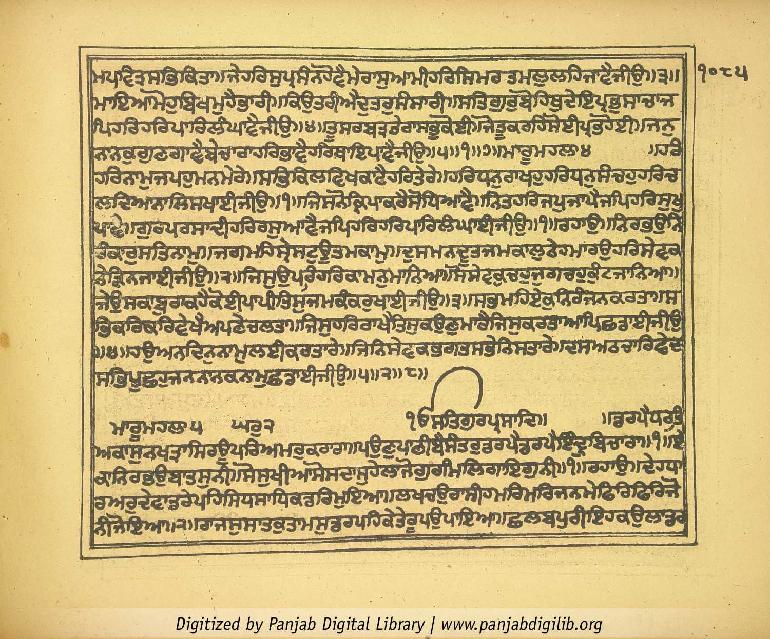 ੧੦੮੫
ਮਪਦਿਤਸਭਿਕਿਤਾ॥ਜੇਹਰਿਸੁਪ੍ਰਸੰਨਹੋਵੈਮੇਰਾਸੁਆਮੀਹਰਿਸਿਮਰਤਮਲੁਲਹਿਜਾਵੈਜੀਉ॥੩॥
ਮਾਇਆਮੋਹੁਬਿਖਮੁਹੈਭਾਰੀ॥ਕਿਉਤਰੀਐਦੁਤਰੁਸੰਸਾਰੀ॥ਸਤਿਗੁਰੁਬੋਹਿਥੁਦੇਇਪ੍ਰਭੁਸਾਚਾਜ
ਪਿਹਰਿਹਰਿਪਾਰਿਲੰਘਾਵੈਜੀਉ॥੪॥ਤੂਸਰਬਤ੍ਰਤੇਰਾਸਭੁਕੋਈ॥ਜੋਤੂਕਰਹਿਸੋਈਪ੍ਰਭਹੋਈ॥ਜਨੁ
ਨਾਨਕੁਗੁਣਗਾਵੈਬੇਚਾਰਾਹਰਿਭਾਵੈਹਰਿਥਾਇਪਾਵੈਜੀਉ॥੫॥੧॥੭॥ਮਾਰੂਮਹਲਾ੪ ॥ਹਰਿ
ਹਰਿਨਾਮੁਜਪਹੁਮਨਮੇਰੇ॥ਸਭਿਕਿਲਵਿਖਕਾਟੈਹਰਿਤੇਰੇ॥ਹਰਿਧਨੁਰਾਖਹੁਹਰਿਧਨੁਸੰਚਹੁਹਰਿਚ
ਲਦਿਆਨਾਲਿਸਖਾਈਜੀਉ॥੧॥ਜਿਸਨੋਕ੍ਰਿਪਾਕਰੇਸੋਧਿਆਵੈ॥ਨਿਤਹਰਿਜਪੁਜਾਪੈਜਪਿਹਰਿਸੁਖੁ
ਪਾਵੈ॥ਗੁਰਪਰਸਾਦੀਹਰਿਰਸੁਆਵੈਜਪਿਹਰਿਹਰਿਪਾਰਿਲੰਘਾਈਜੀਉ॥੧॥ਰਹਾਉ॥ਨਿਰਭਉਨਿ
ਰੰਕਾਰੁਸਤਿਨਾਮੁ॥ਜਗਮਹਿਸ੍ਰੇਸਟੁਊਤਮਕਾਮੁ॥ਦੁਸਮਨਦੂਤਜਮਕਾਲੁਠੇਹਮਾਰਉਹਰਿਸੇਵਕ
ਨੇੜਿਨਜਾਈਜੀਉ॥੨॥ਜਿਸੁਉਪਰਿਹਰਿਕਾਮਨੁਮਾਨਿਆ॥ਸੋਸੇਵਕੁਚਹੁਜੁਗਚਹੁਕੁੰਟਜਾਨਿਆ॥
ਜੇਉਸਕਾਬੁਰਾਕਹੈਕੋਈਪਾਪੀਤਿਸੁਜਮਕੰਕਰੁਖਾਈਜੀਉ॥੩॥ਸਭਮਹਿਏਕੁਨਿਰੰਜਨਕਰਤਾ॥ਸ
ਭਿਕਰਿਕਰਿਵੇਖੈਅਪਣੇਚਲਤਾ॥ਜਿਸੁਹਰਿਰਾਖੈਤਿਸੁਕਉਣੁਮਾਰੈਜਿਸੁਕਰਤਾਆਪਿਛਡਾਈਜੀਉ
॥੪॥ਹਉਅਨਦਿਨੁਨਾਮੁਲਈਕਰਤਾਰੇ॥ਜਿਨਿਸੇਵਕਭਗਤਸਭੇਨਿਸਤਾਰੇ॥ਦਸਅਠਚਾਰਿਵੇਦ
ਸਭਿਪੂਛਹੁਜਨਨਾਨਕਨਾਮੁਛਡਾਈਜੀਉ॥੫॥੨॥੮॥
ਮਾਰੂਮਹਲਾ੫ ਘਰੁ੨ ੴਸਤਿਗੁਰਪ੍ਰਸਾਦਿ॥ ॥ਡਰਪੈਧਰਤਿ
ਅਕਾਸੁਨਖ੍ਯਤ੍ਰਾਸਿਰਊਪਰਿਅਮਰੁਕਰਾਰਾ॥ਪਉਣੁਪਾਣੀਬੈਸੰਤਰੁਡਰਪੈਡਰਪੈਇੰਦ੍ਰੁਬਿਚਾਰਾ॥੧॥ਏ
ਕਾਨਿਰਭਉਬਾਤਸੁਨੀ॥ਸੋਸੁਖੀਆਸੋਸਦਾਸੁਹੇਲਾਜੋਗੁਰਮਿਲਿਗਾਇਗੁਨੀ॥੧॥ਰਹਾਉ॥ਦੇਹਧਾ
ਰਅਰੁਦੇਵਾਡਰਪਹਿਸਿਧਸਾਧਿਕਡਰਿਮੁਇਆ॥ਲਖਚਉਰਾਸੀਹਮਰਿਮਰਿਜਨਮੇਫਿਰਿਫਿਰਿਜੋ
ਨੀਜੋਇਆ॥੨॥ਰਾਜਸੁਸਾਤਕੁਤਾਮਸੁਡਰਪਹਿਕੇਤੇਰੂਪਉਪਾਇਆ॥ਛਲਬਪੁਰੀਇਹਕਉਲਾਡਰ
Digitized by Panjab Digital Library | www.panjabdigilib.org